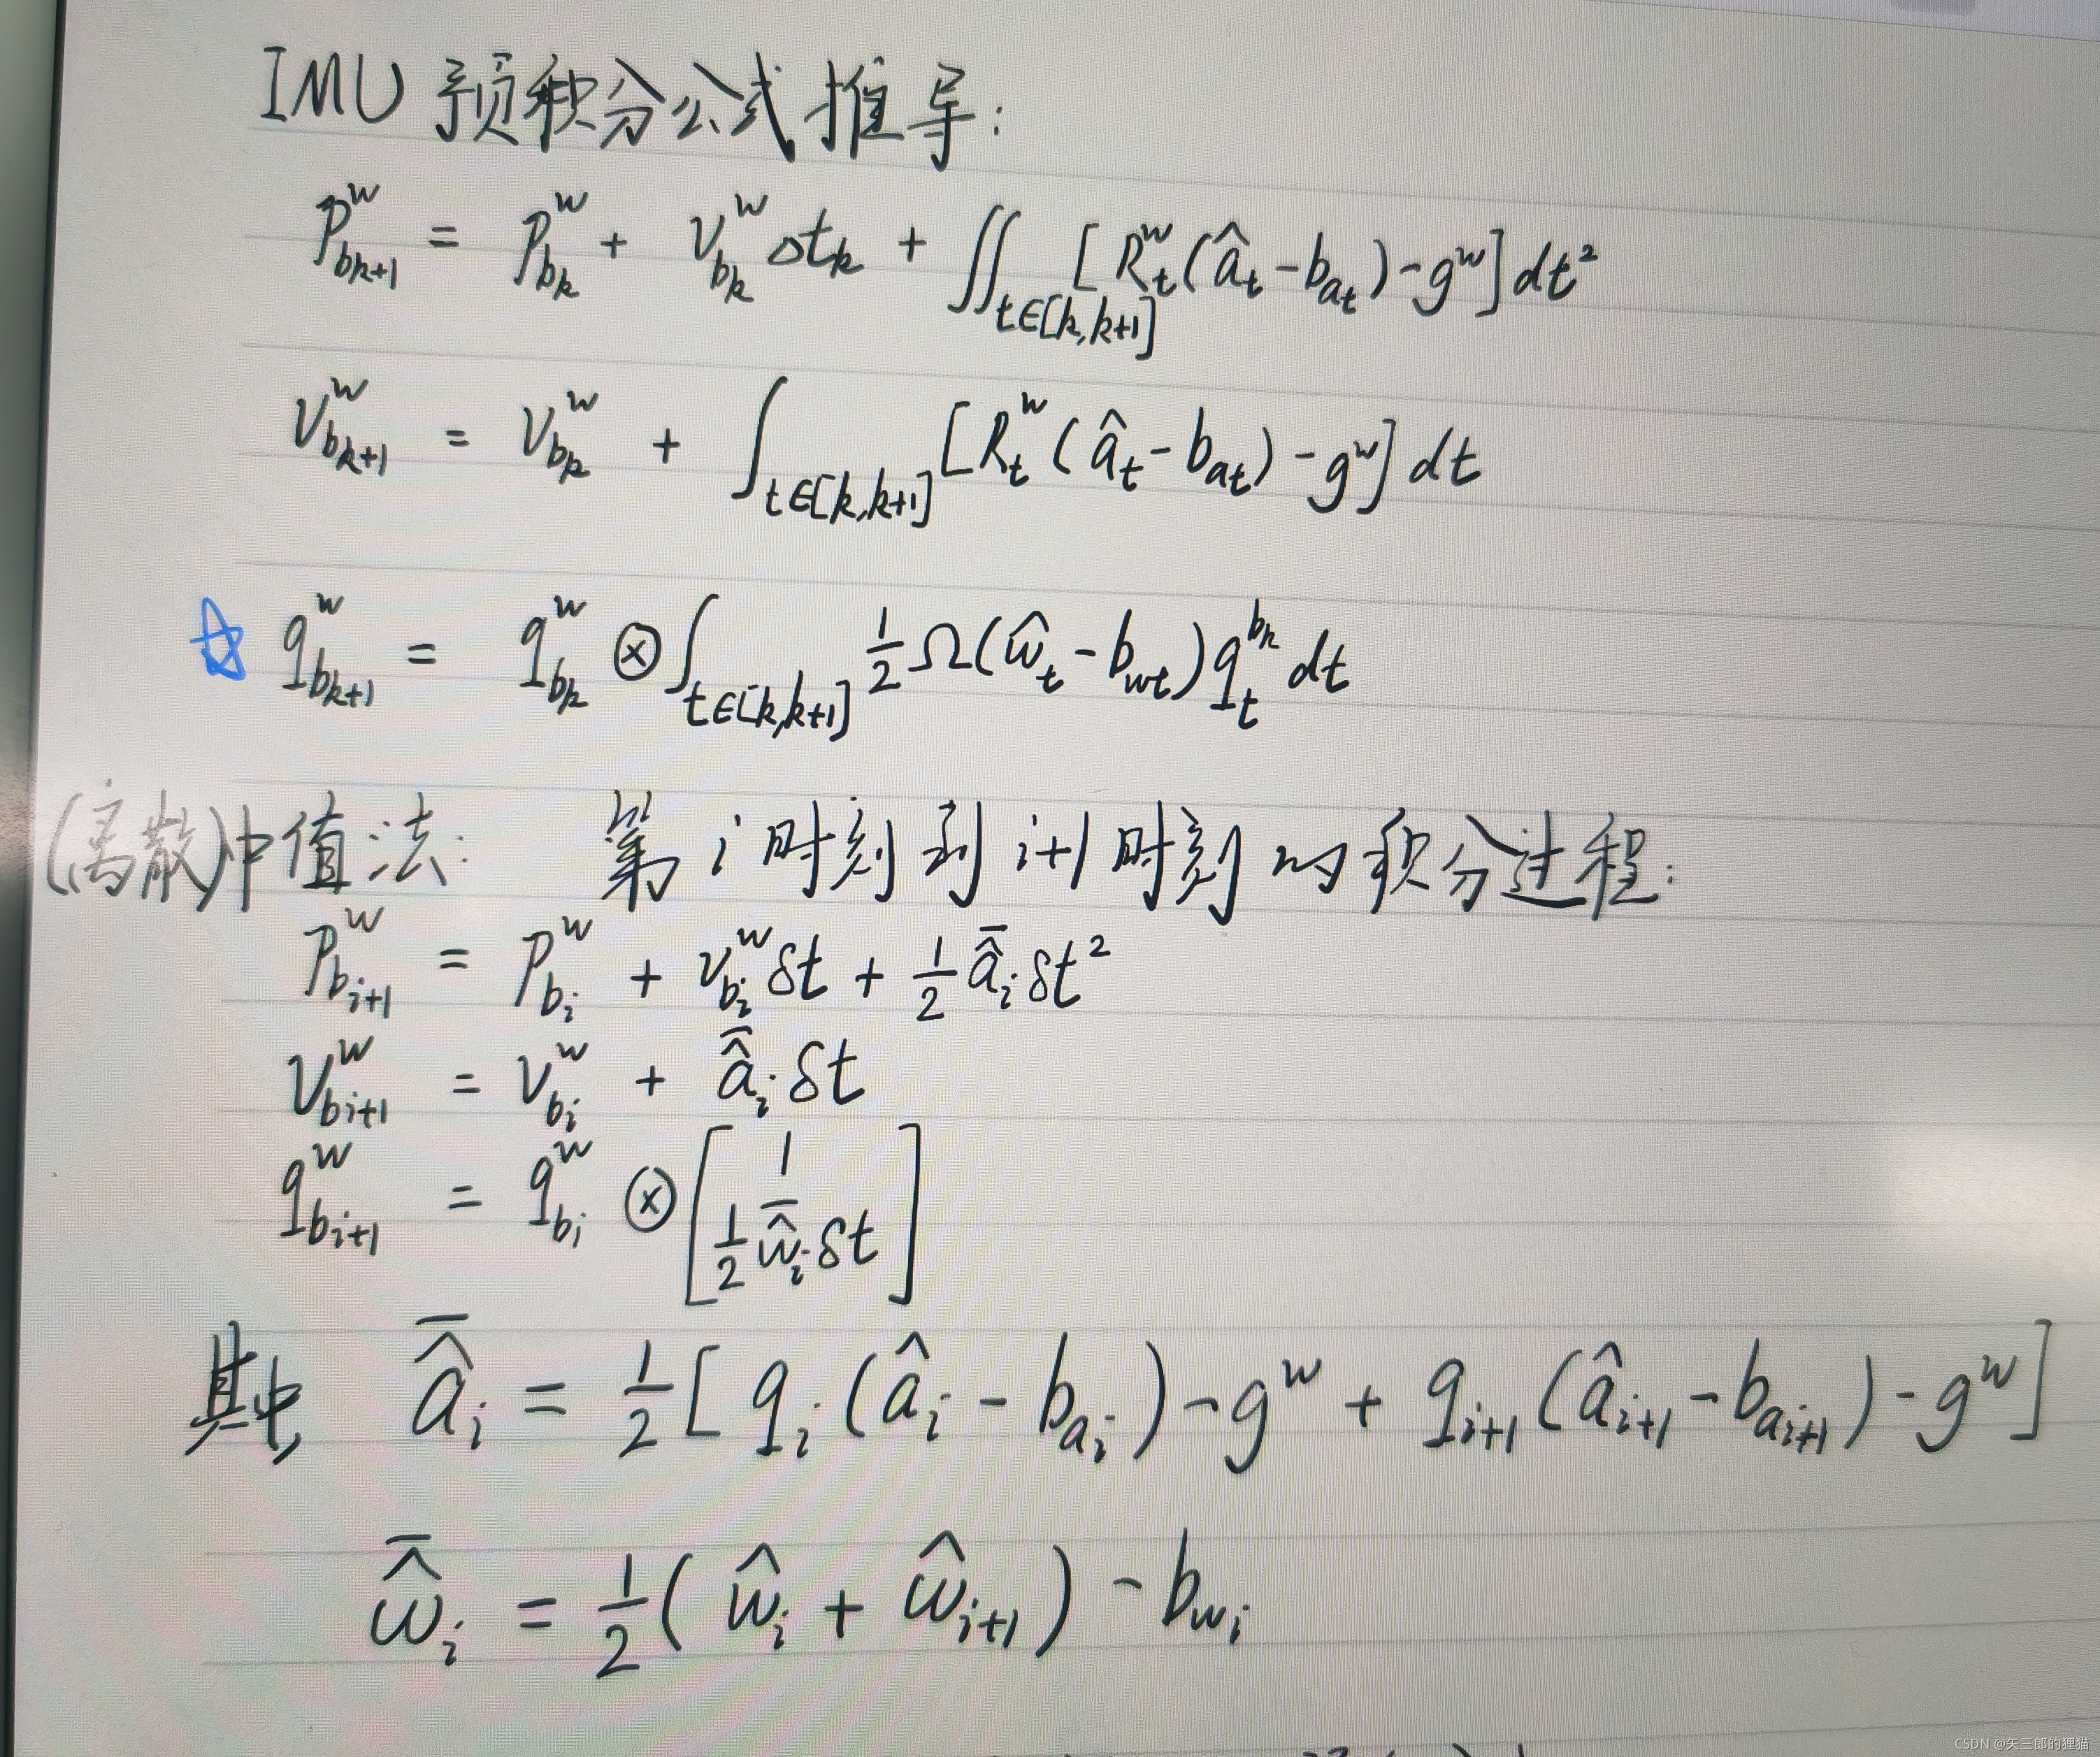 IMU 预积分公式推导:
P^w_{b_{k+1}} = P^w_{b_k} + V^w_{b_k} Δt_k + ∬_{t∈[k,k+1]} [R^w_t(â_t - b_{a_t}) - g^w] dt²
V^w_{b_{k+1}} = V^w_{b_k} + ∫_{t∈[k,k+1]} [R^w_t(â_t - b_{a_t}) - g^w] dt
☆ q^w_{b_{k+1}} = q^w_{b_k} ⊗ ∫_{t∈[k,k+1]} 1/2 Ω(ŵ_t - b_{w_t}) q^{b_k}_t dt
(离散)中值法: 第 i 时刻到 i+1 时刻的积分过程:
P^w_{b_{i+1}} = P^w_{b_i} + V^w_{b_i} δt + 1/2 \bar{â}_i δt²
V^w_{b_{i+1}} = V^w_{b_i} + \bar{â}_i δt
q^w_{b_{i+1}} = q^w_{b_i} ⊗ [1; 1/2 \bar{ŵ}_i δt]
其中 \bar{â}_i = 1/2 [q_i(â_i - b_{a_i}) - g^w + q_{i+1}(â_{i+1} - b_{a_{i+1}}) - g^w]
\bar{ŵ}_i = 1/2 (ŵ_i + ŵ_{i+1}) - b_{w_i}
CSDN @矢三郎的狸猫